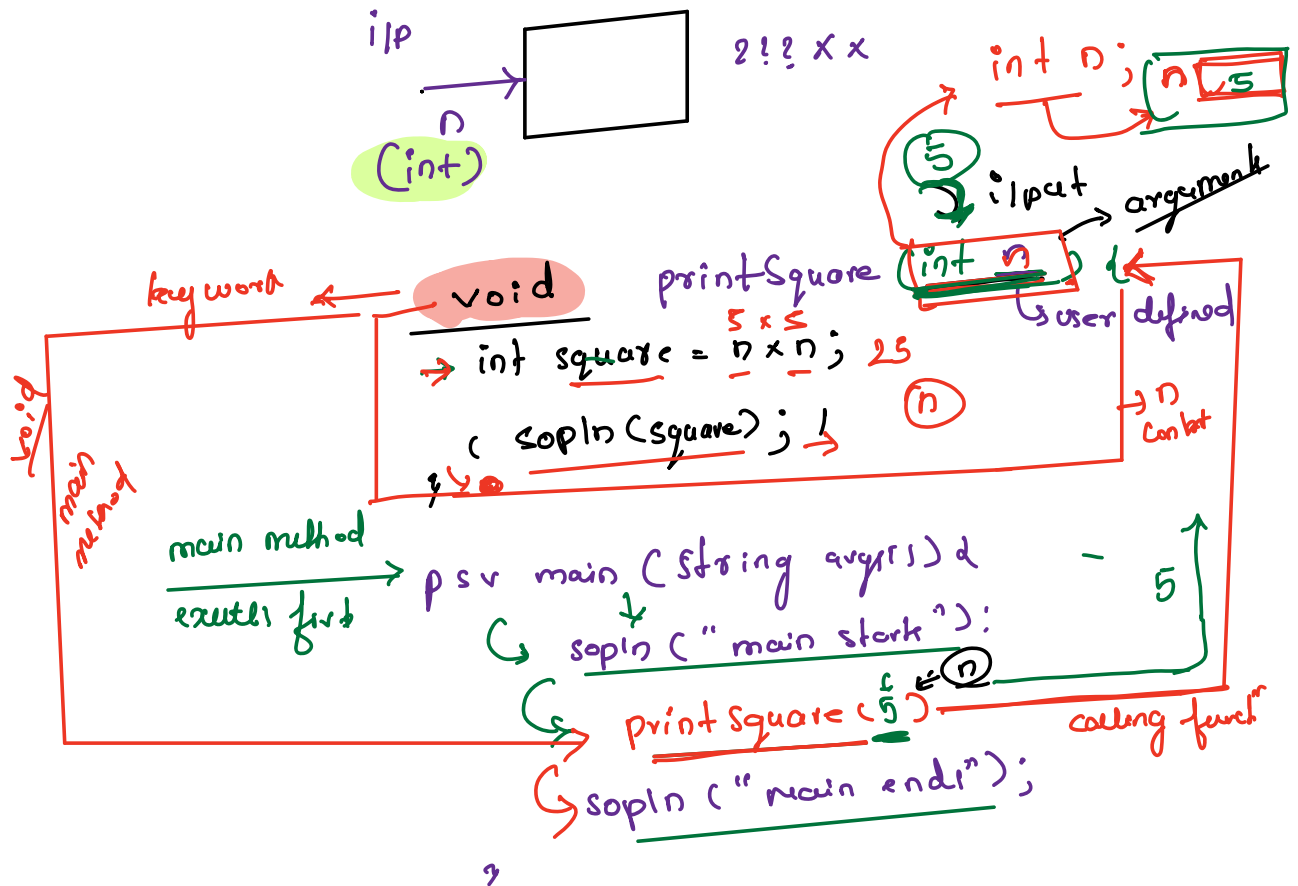 i/p
2 ! ? x x
int n;
n 5
n
(int)
5
i/put
argument
keyword
void printSquare (int n) {
user defined
5 x 5
int square = n x n; 25
n
void
n
( sopln(square);
}
main method
main method
executes first
psv main (String args[]) {
5
sopln ("main start");
n
printSquare (5)
calling funct^n
sopln ("main ends");
}